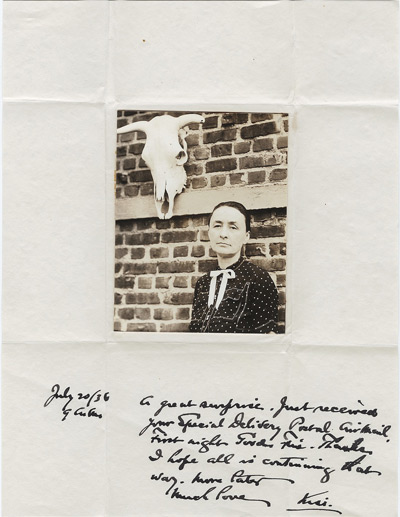 July 20/36
A great surprise. Just received
your Special Delivery Postal Airmail.
First night Thanks
I hope all is continuing that
way. More later
Much love